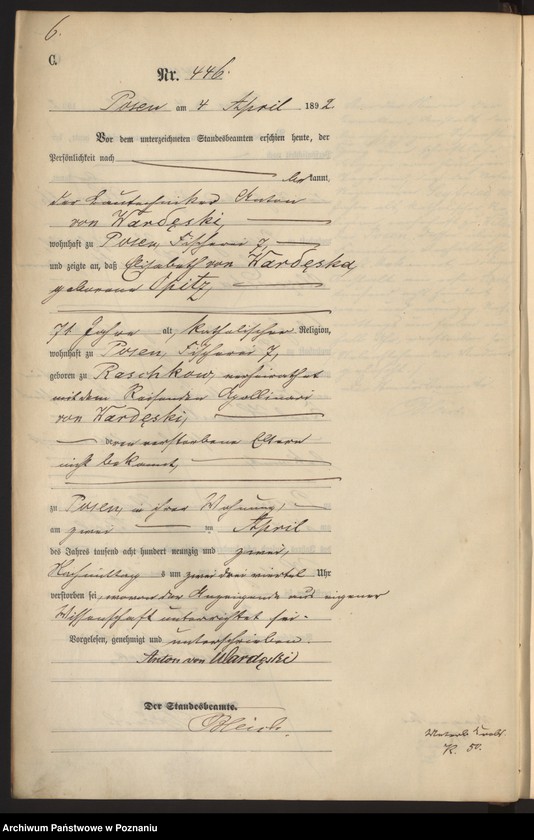 6.
C.
Nr. 446.
Posen am 4 April 1892
Vor dem unterzeichneten Standesbeamten erschien heute, der
Persönlichkeit nach
bekannt,
der Bautechniker Anton
von Wardęski,
wohnhaft zu Posen, Fischerei 7,
und zeigte an, daß Elisabeth von Wardęska,
geborene Opitz,
71 Jahre alt, katholischer Religion,
wohnhaft zu Posen, Fischerei 7,
geboren zu Raschkow, verheirathet
mit dem Reisenden Apollinari
von Wardęski,
deren verstorbene Eltern
nicht bekannt,
zu Posen, in ihrer Wohnung,
am zwei ten April
des Jahres tausend acht hundert neunzig und zwei,
Nachmittags um zwei drei viertel Uhr
verstorben sei, wovon der Anzeigende aus eigener
Wissenschaft unterrichtet sei.
Vorgelesen, genehmigt und unterschrieben.
Anton von Wardęski
Der Standesbeamte.
K. 50.
Archiwum Państwowe w Poznaniu